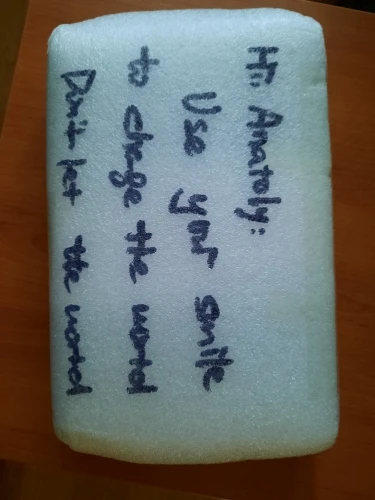 Hi. Anatoly:
Use your smile
to change the world
Don't let the world